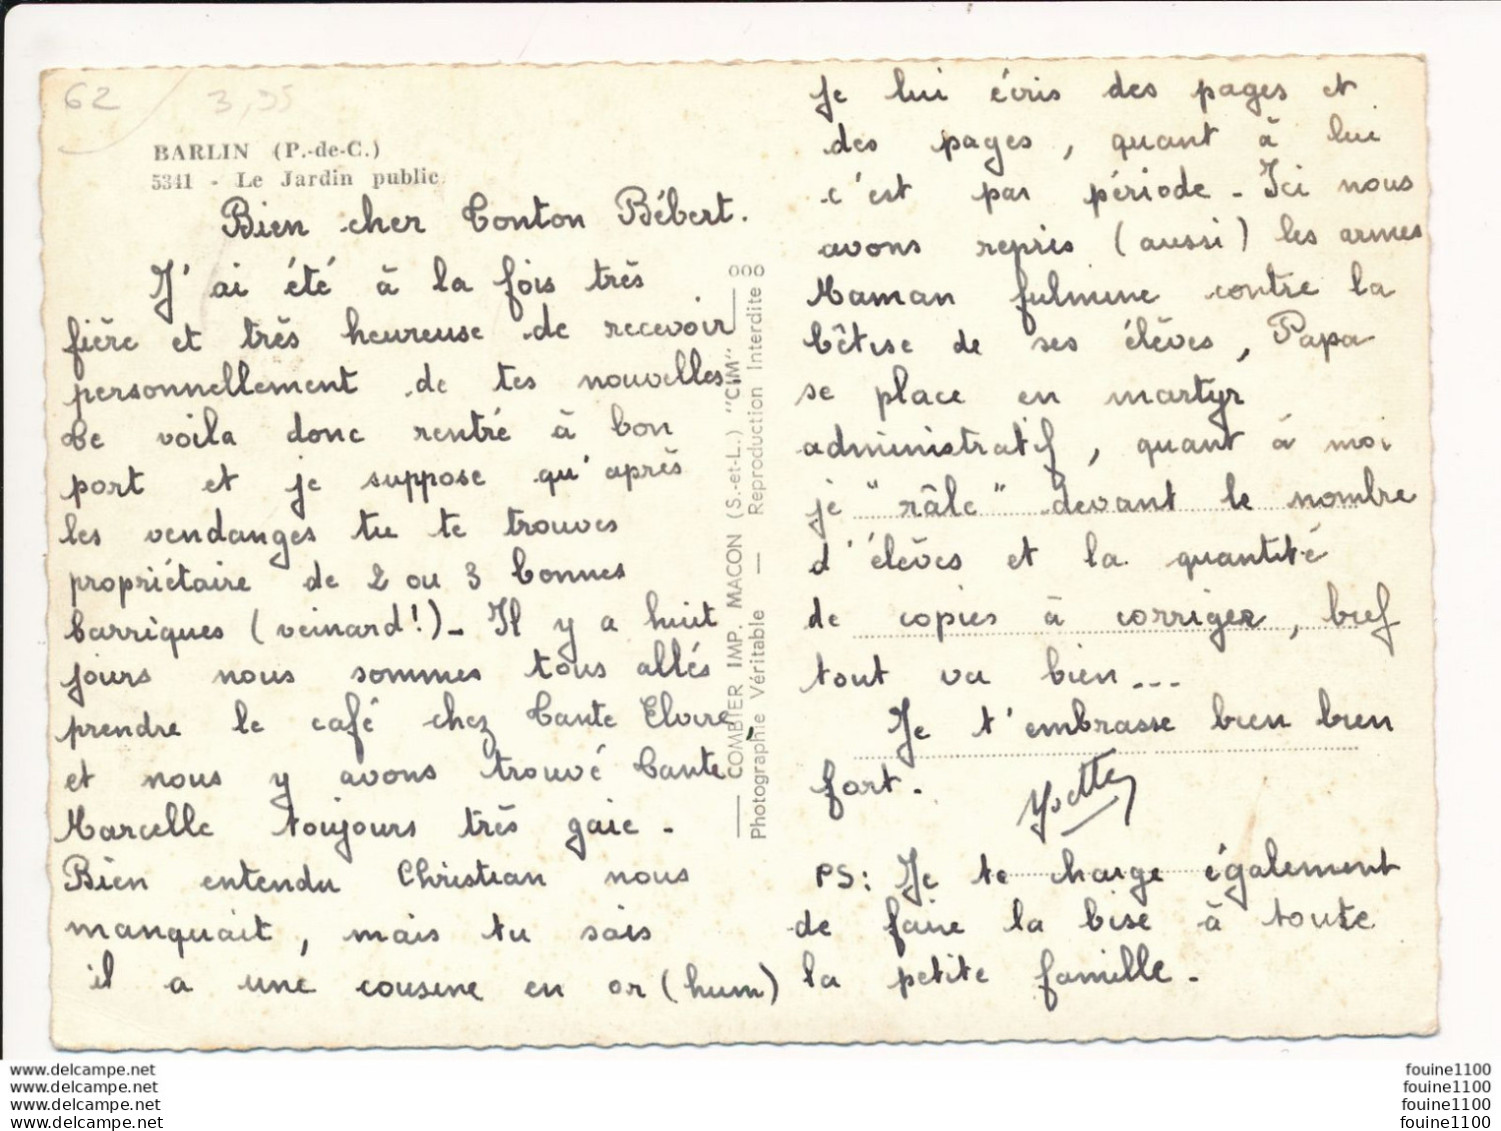 62
3,95
BARLIN (P.-de-C.)
5341 - Le Jardin public
Bien cher Tonton Bébert.
J'ai été à la fois très
fière et très heureuse de recevoir
personnellement de tes nouvelles.
Te voila donc rentré à bon
port et je suppose qu'après
les vendanges tu te trouves
propriétaire de 2 ou 3 bonnes
barriques (veinard!)_ Il y a huit
jours nous sommes tous allés
prendre le café chez Tante Elvire
et nous y avons trouvé Tante
Marcelle toujours très gaie -
Bien entendu Christian nous
manquait, mais tu sais
il a une cousine en or (hum)
COMBIER IMP. MACON (S.-et-L.) "CIM"
Photographie Véritable — Reproduction Interdite
je lui écris des pages et
des pages, quant à lui
c'est par période - Ici nous
avons repris (aussi) les armes
Maman fulmine contre la
bêtise de ses élèves, Papa
se place en martyr
administratif, quant à moi
je "râle" devant le nombre
d'élèves et la quantité
de copies à corriger, bref
tout va bien ---
Je t'embrasse bien bien
fort.
Yvette
PS: Je te charge également
de faire la bise à toute
la petite famille -
www.delcampe.net
www.delcampe.net
www.delcampe.net
www.delcampe.net
fouine1100
fouine1100
fouine1100
fouine1100